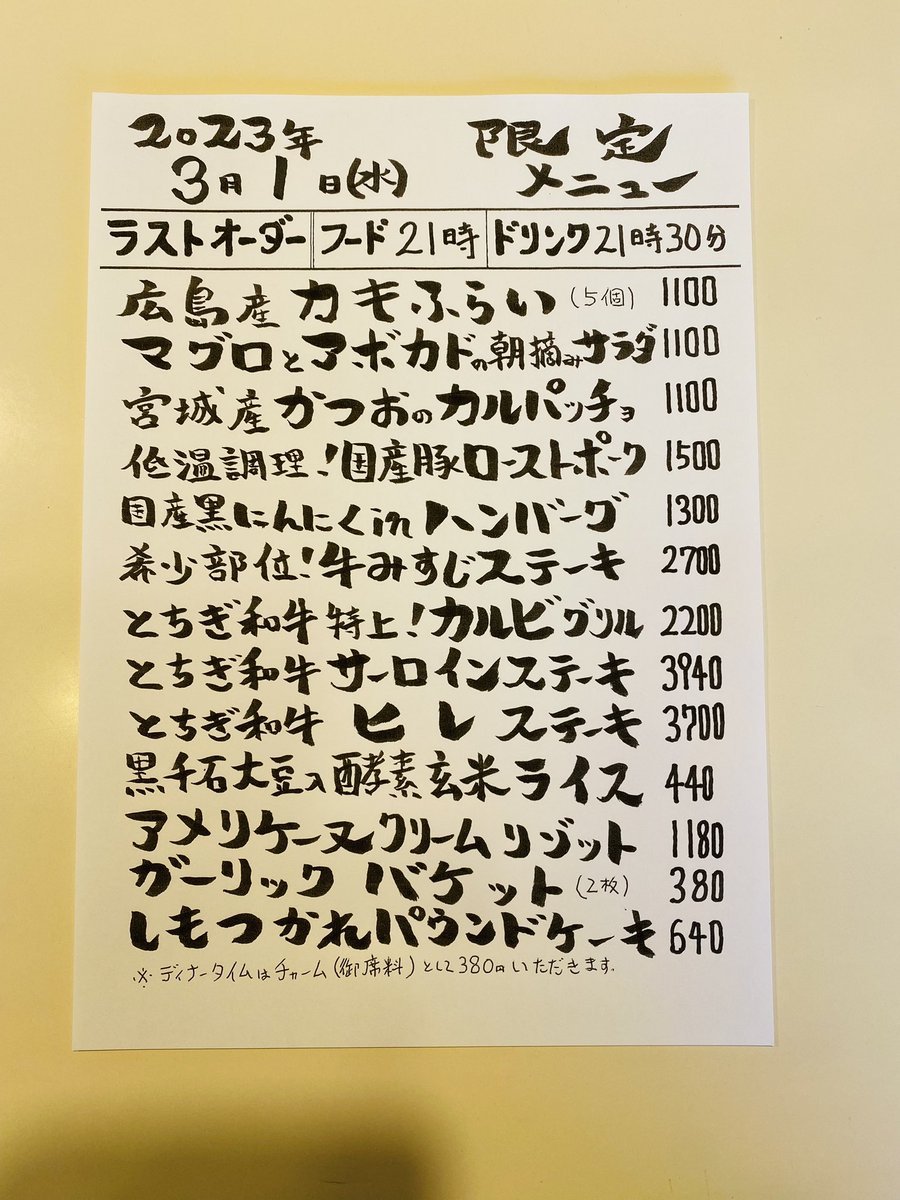 2023年 限定
3月1日(水) メニュー
ラストオーダー フード21時 ドリンク21時30分
広島産カキふらい(5個) 1100
マグロとアボカドの朝摘みサラダ 1100
宮城産かつおのカルパッチョ 1100
低温調理!国産豚ローストポーク 1500
国産黒にんにくinハンバーグ 1300
希少部位!牛みすじステーキ 2700
とちぎ和牛特上!カルビグリル 2200
とちぎ和牛サーロインステーキ 3940
とちぎ和牛 ヒレステーキ 3700
黒千石大豆入酵素玄米ライス 440
アメリケーヌクリームリゾット 1180
ガーリックバケット(2枚) 380
しもつかれパウンドケーキ 640
※ディナータイムはチャーム(御席料)として380円いただきます。